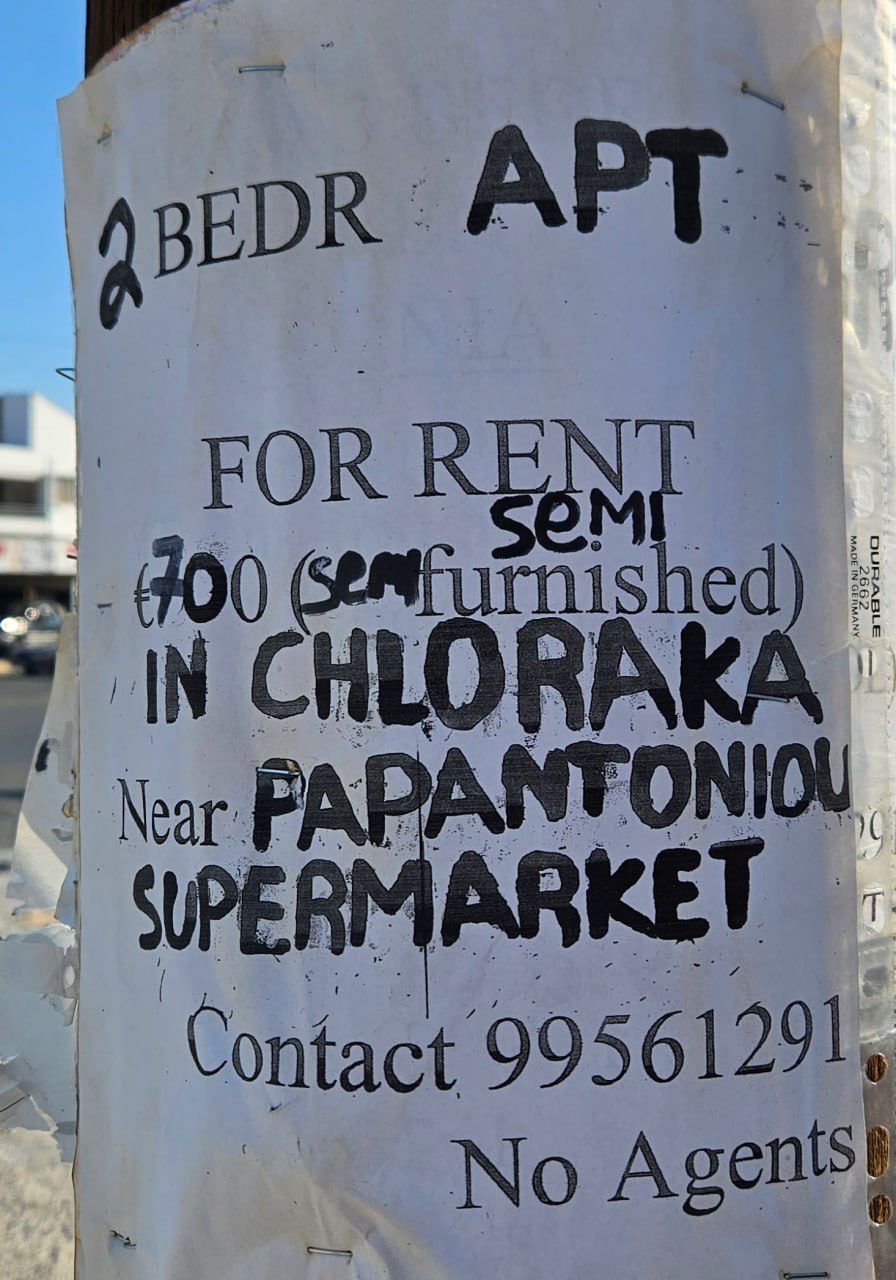 2 BEDR APT
FOR RENT
SeMI
€700 (semi furnished)
IN CHLORAKA
Near PAPANTONIOU
SUPERMARKET
Contact 99561291
No Agents
DURABLE
2662
MADE IN GERMANY